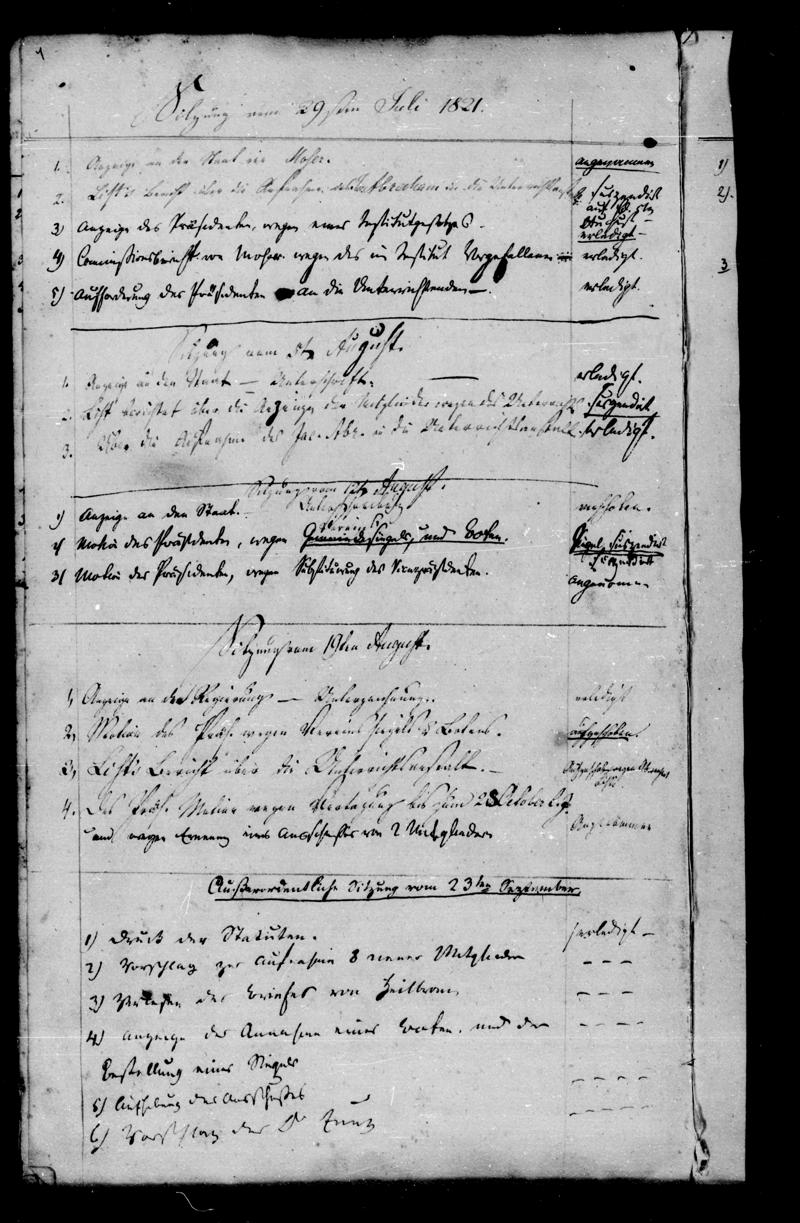 Sitzung vom 29sten Juli 1821.
1. Anzeige an den Staat von Moser. angenommen
2. List's Bericht über die Aufnahme des Abraham in die Unterrichtsanstalt suspendirt
auf d. 5ten
August
3) Anzeige des Präsidenten, wegen eines Institutgesetzes. erledigt.
4) Commissionsbericht von Moser wegen des im Institut Vorgefallenen erledigt.
5) Aufforderung des Präsidenten an die Unterrichtenden erledigt.
Sitzung vom 5ten August.
1. Anzeige an den Staat — Unterschrift. erledigt.
2. List berichtet über die Anzeige der Mitglieder wegen des Unterrichts suspendirt
3. Über die Aufnahme des Jac. Abr. in die Unterrichtsanstalt erledigt.
Sitzung vom 12ten August.
1) Anzeige an den Staat. Unterschrift verschoben.
Vereins
2) Motion des Präsidenten, wegen Gemeindesiegels, und Boten. Siegel, suspendirt
suspendirt
3) Motion des Präsidenten, wegen Substituirung des Vicepräsidenten. angenommen
Sitzung vom 19ten August.
1, Anzeige an die Regierung — Unterzeichnung. erledigt
2, Motion des Präs. wegen Vereinssiegels & Botens. aufgeschoben.
3, List's Bericht über die Unterrichtsanstalt. — Aufgeschoben wegen
4. Des Präs. Motion wegen Vertagung bis zum 28 October
und wegen Ernennung eines Ausschusses von 2 Mitgliedern Angenommen
Außerordentliche Sitzung vom 23ten September.
1) Druck der Statuten. erledigt —
2) Vorschlag zur Aufnahme 8 neuer Mitglieder – – –
3) Verlesen des Briefes von Heilbronn – – –
4) Anzeige der Annahme eines Boten. und der – – – –
Bestellung eines Siegels
5) Aufhebung des Ausschusses – – – –
6) Vorschlag des Dr Zunz – – – –
1)
2).
3